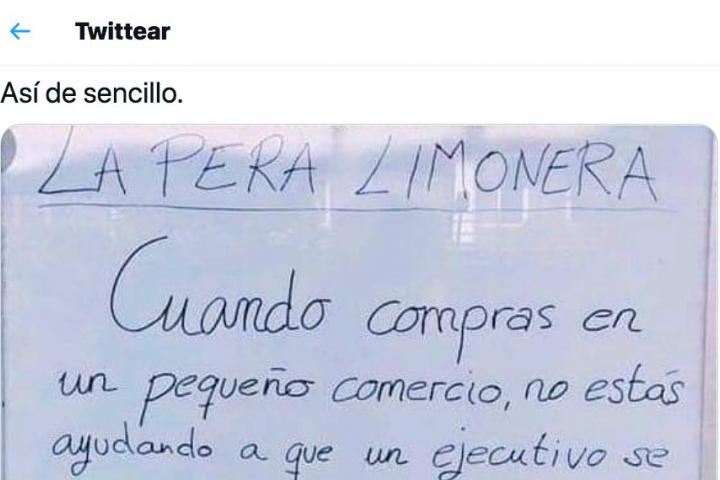 Twittear
Así de sencillo.
LA PERA LIMONERA
Cuando compras en
un pequeño comercio, no estás
ayudando a que un ejecutivo se